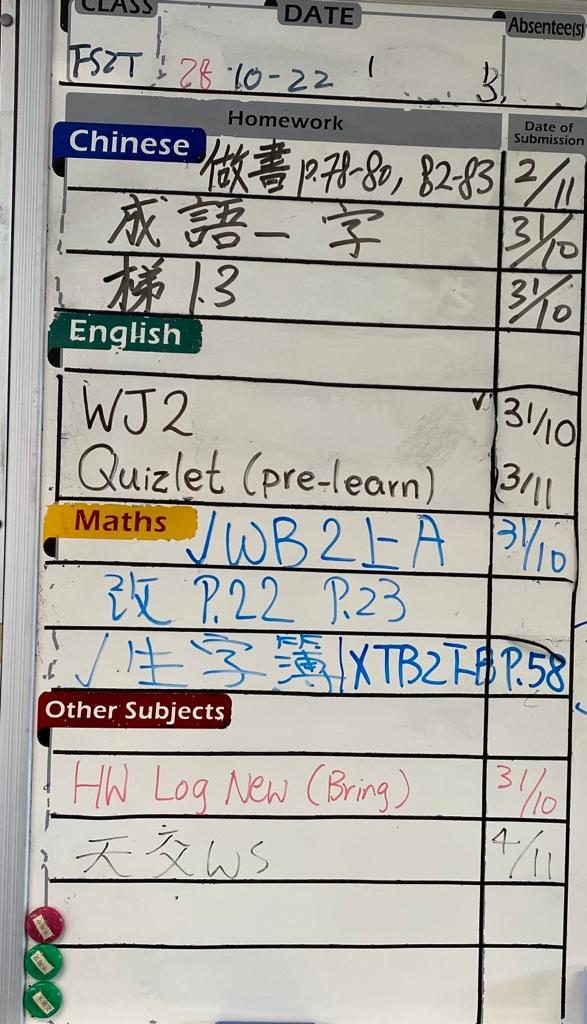 CLASS DATE Absentee(s)
28-10-22
Homework Date of Submission
Chinese
做書 p.78-80, 82-83 2/11
成語一字 31/10
梯 1.3 31/10
English
WJ2 31/10
Quizlet (pre-learn) 3/11
Maths
√WB2上A 31/10
改 P.22 P.23
√生字簿 | X TB2下B P.58
Other Subjects
HW Log New (Bring) 31/10
天交WS 4/11